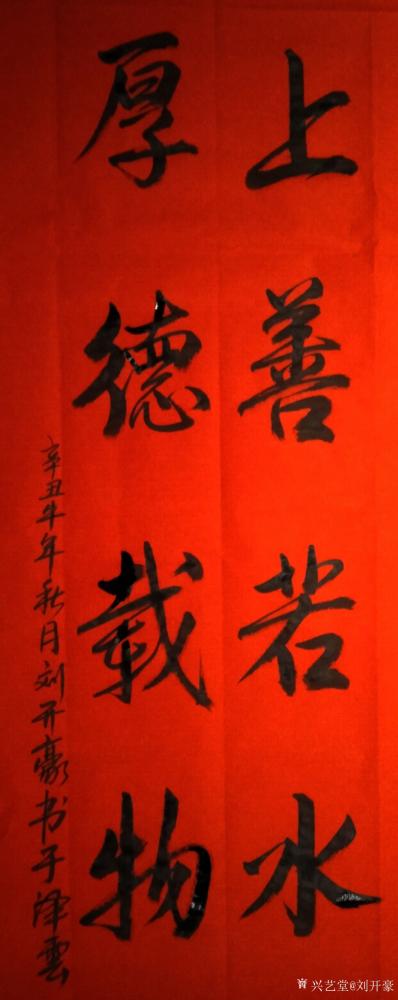 上善若水
厚德载物
辛丑牛年秋月刘开豪书于泽雲
兴艺堂@刘开豪